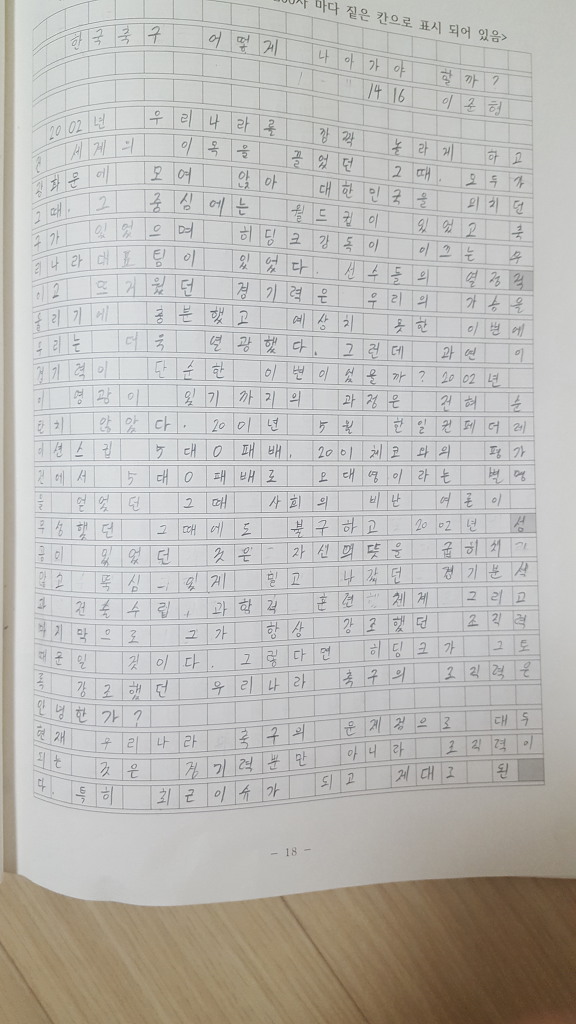 마다 짙은 칸으로 표시 되어 있음>
한국축구 어떻게 나아가야 할까?
1416 이준형
2002년 우리나라를 깜짝 놀라게 하고
전 세계의 이목을 끌었던 그때. 모두가
광화문에 모여 앉아 대한민국을 외치던
그때. 그 중심에는 월드컵이 있었고 축
구가 있었으며 히딩크감독이 이끄는 우
리나라대표팀이 있었다. 선수들의 열정적
이고 뜨거웠던 경기력은 우리의 가슴을
울리기에 충분했고 예상치 못한 이변에
우리는 더욱 열광했다. 그런데 과연 이
경기력이 단순한 이변이었을까? 2002년
이 영광이 있기까지의 과정은 전혀 순
탄치 않았다. 2001년 5월 한일컨페더레
이션스컵 5대0패배, 2001체코와의 평가
전에서 5대0패배로 오대영이라는 별명
을 얻었던 그때 사회의 비난 여론이
무성했던 그때에도 불구하고 2002년 성
공이 있었던 것은 자신의뜻을 굽히지
않고 뚝심 있게 밀고 나갔던 경기분석
과 전술수립, 과학적 훈련 체계 그리고
마지막으로 그가 항상 강조했던 조직력
때문일 것이다. 그렇다면 히딩크가 그토
록 강조했던 우리나라 축구의 조직력은
안녕한가?
현재 우리나라 축구의 문제점으로 대두
되는 것은 경기력뿐만 아니라 조직력이
다. 특히 최근이슈가 되고 제대로 된
- 18 -